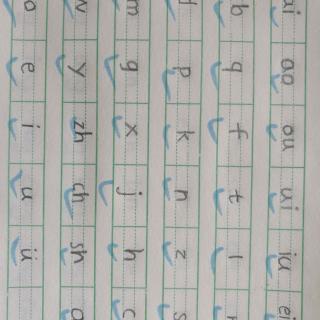 o e i u ü
w y zh ch sh
m g x j h c
p k n z s
b q f t l
ai ao ou ui iu ei